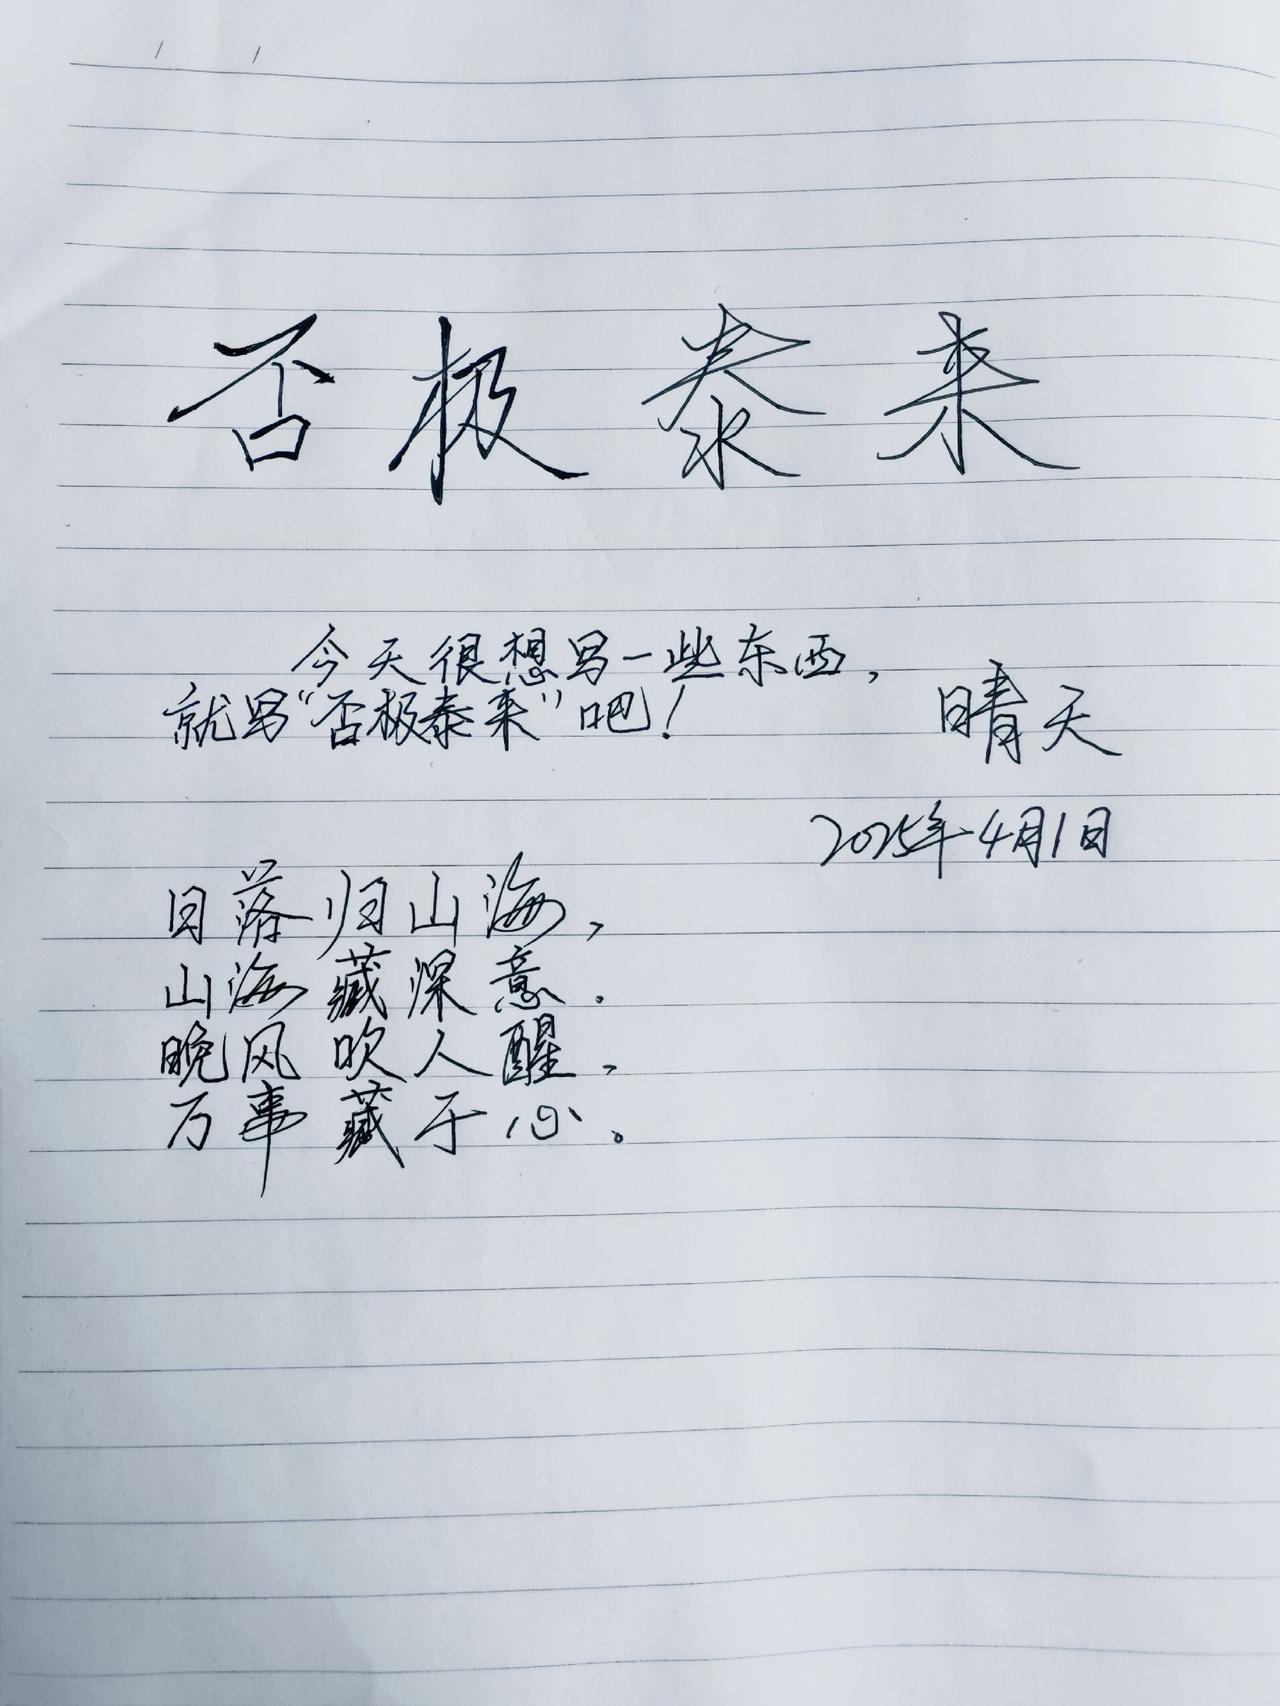 否极泰来
今天很想写一些东西，
就写“否极泰来”吧！
晴天
2025年4月1日
日落归山海，
山海藏深意.
晚风吹人醒，
万事藏于心。